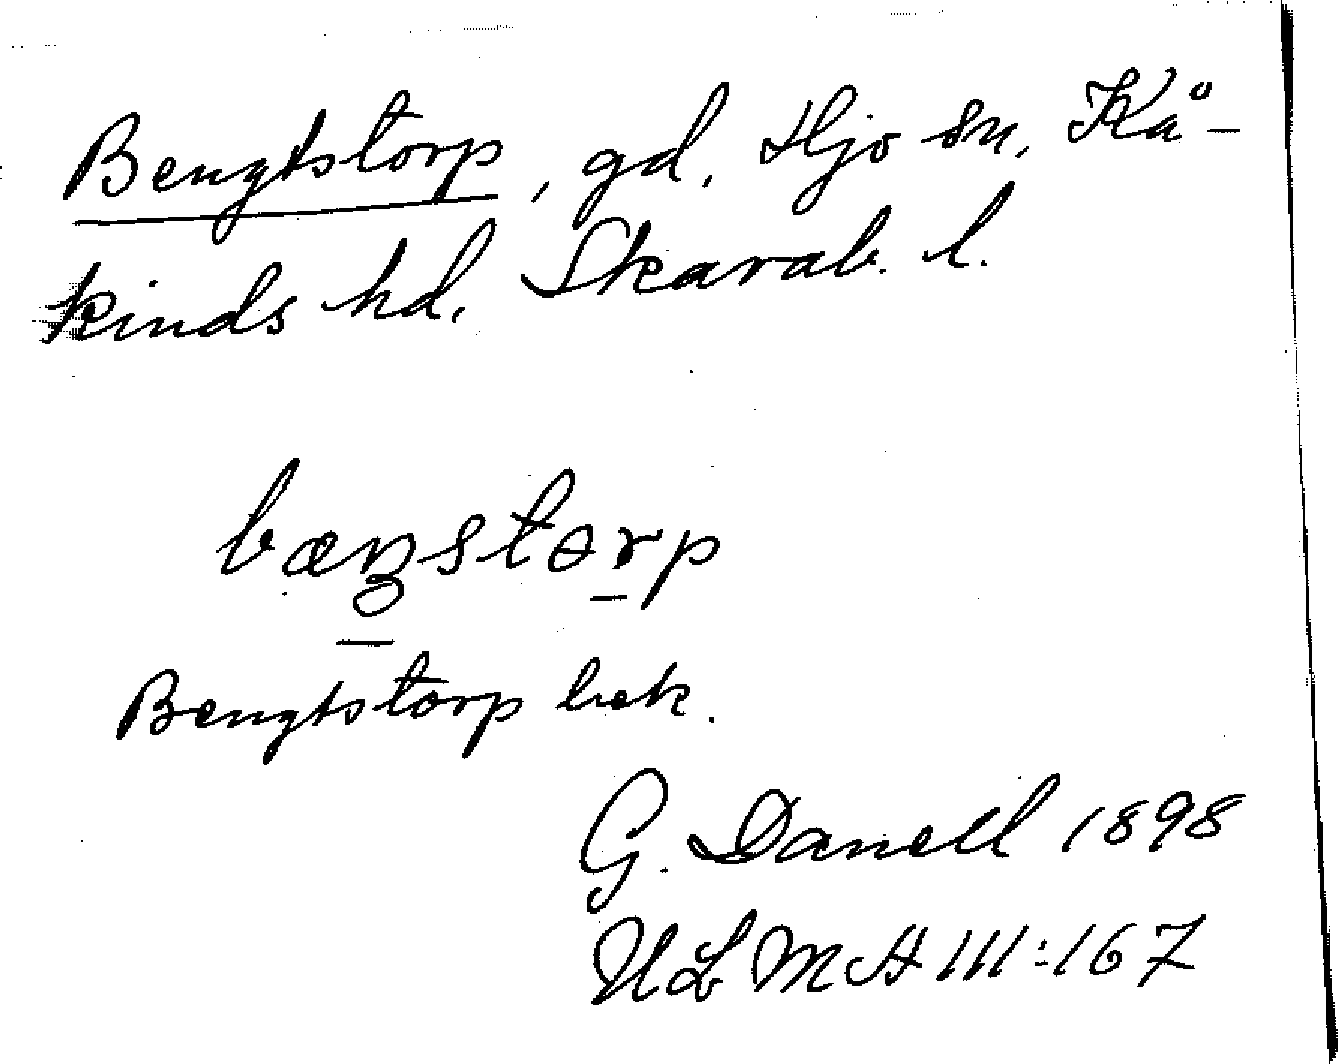 Bengtstorp, gd, Hjo sn, Kå-
kinds hd, Skarab. l.
bæŋstərp
Bengtstorp bek.
G. Danell 1898
ULMA 111:167